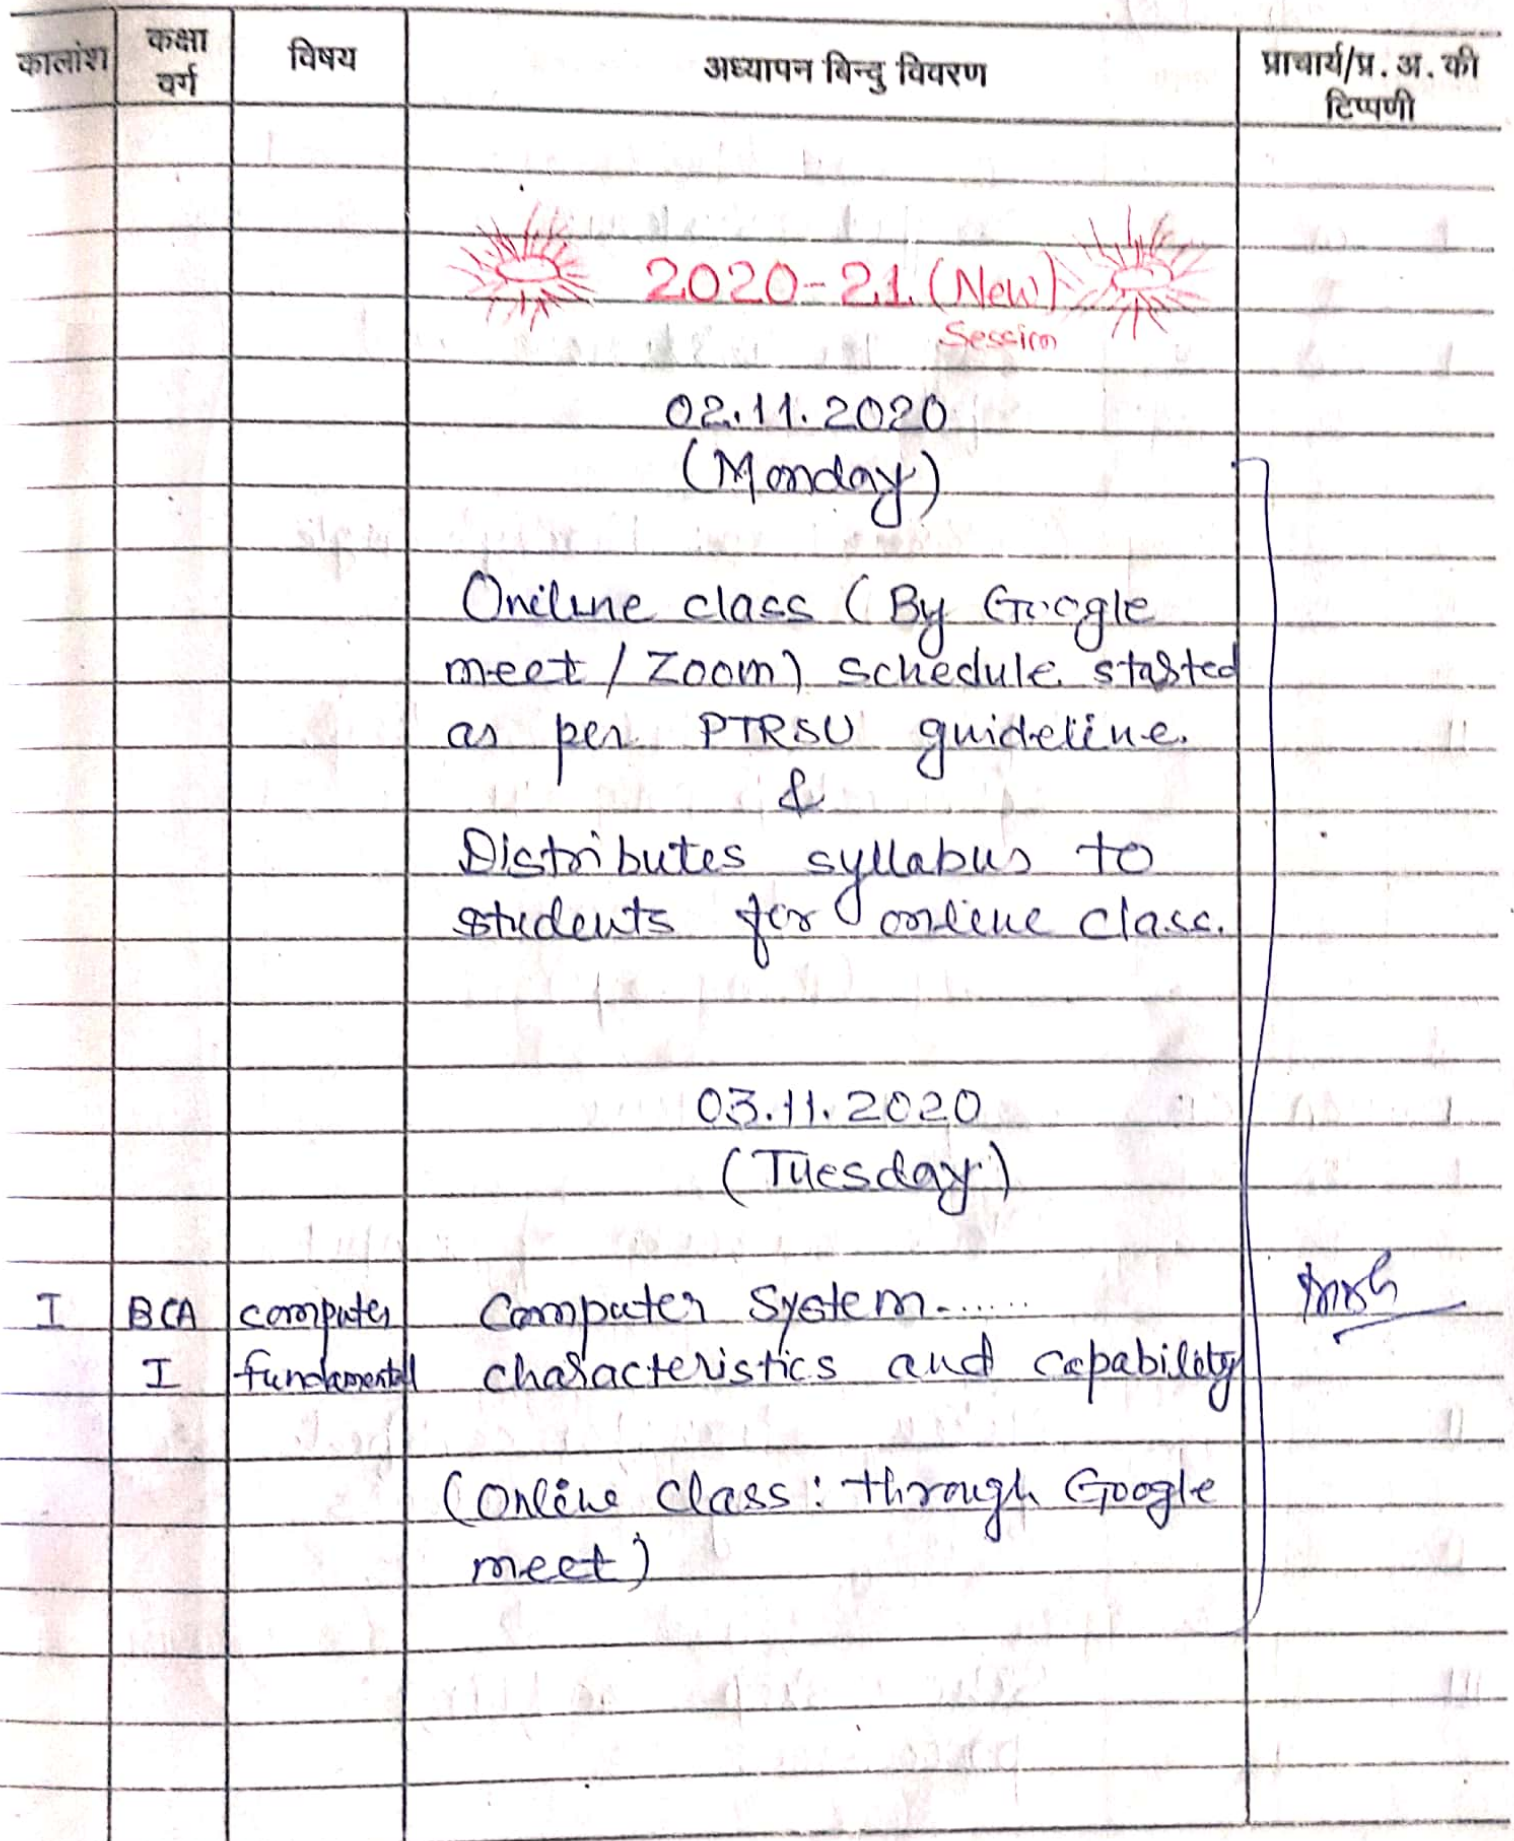 कालांश कक्षा वर्ग विषय अध्यापन बिन्दु विवरण प्राचार्य/प्र. अ. की टिप्पणी
2020-21 (New)
Session
02.11.2020
(Monday)
Oniline class (By Google
meet / Zoom) schedule started
as per PTRSU guideline.
&
Distributes syllabus to
students for online class.
03.11.2020
(Tuesday)
I BCA computer Computer System.......
I fundamental characteristics and capability
(Online class : through Google
meet)